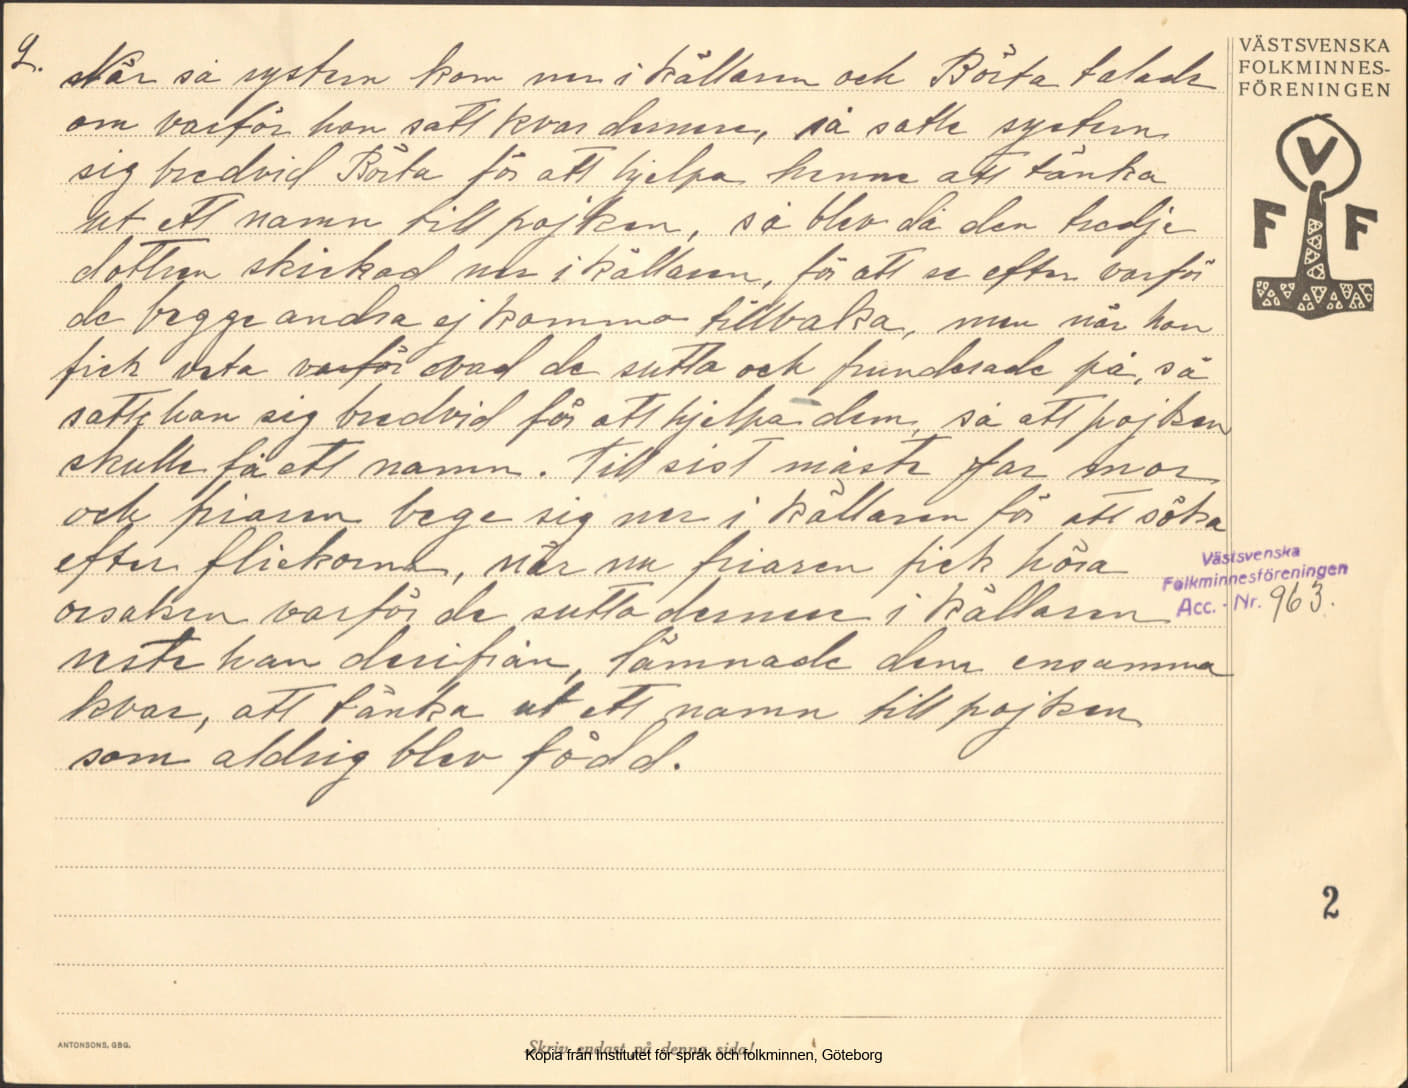 2.
När så system kom ner i källaren och Börta talade
om varför hon satt kvar dernere, så satte system
sig bredvid Börta för att hjelpa henne att tänka
ut ett namn till pojken, så blev då den tredje
dottren skickad ner i källaren, för att se efter varför
de begge andra ej kommo tillbaka, men när hon
fick veta varför vad de sutto och funderade på, så
satte hon sig bredvid för att hjelpa dem, så att pojken
skulle få ett namn. Till sist måste far mor
och friaren bege sig ner i källaren för att söka
efter flickorna, när nu friaren fick höra
orsaken varför de sutto dernere i källaren
reste han derifrån, lämnade dem ensamma
kvar, att tänka ut ett namn till pojken
som aldrig blev född.
VÄSTSVENSKA
FOLKMINNES-
FÖRENINGEN
V
F F
Västsvenska
Folkminnesföreningen
Acc. - Nr. 963.
2
ANTONSONS, GBG.
Skriv endast på denna sida!
Kopia från Institutet för språk och folkminnen, Göteborg